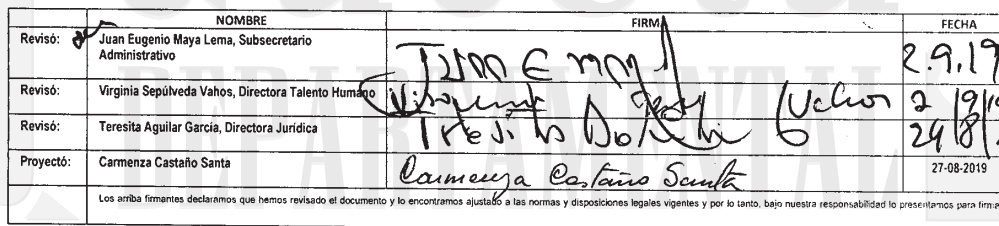 NOMBRE FIRMA FECHA
Revisó: Juan Eugenio Maya Lema, Subsecretario Administrativo 2.9.19
Revisó: Virginia Sepúlveda Vahos, Directora Talento Humano Vahos 2/9/19
Revisó: Teresita Aguilar García, Directora Jurídica 29/8/
Proyectó: Carmenza Castaño Santa Carmenza Castaño Santa 27-08-2019
Los arriba firmantes declaramos que hemos revisado el documento y lo encontramos ajustado a las normas y disposiciones legales vigentes y por lo tanto, bajo nuestra responsabilidad lo presentamos para firma
DEPARTAMENTAL